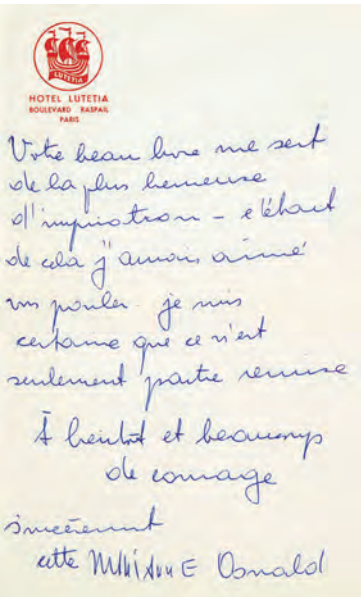 LUTETIA
HOTEL LUTETIA
BOULEVARD RASPAIL
PARIS
Votre beau livre me sert
de la plus heureuse
d'inspiration – c'était
de cela j'aurais aimé
vous parler. je suis
certaine que ce n'est
seulement partie remise
À bientôt et beaucoup
de courage
sincèrement
cette MARIANNE Oswald